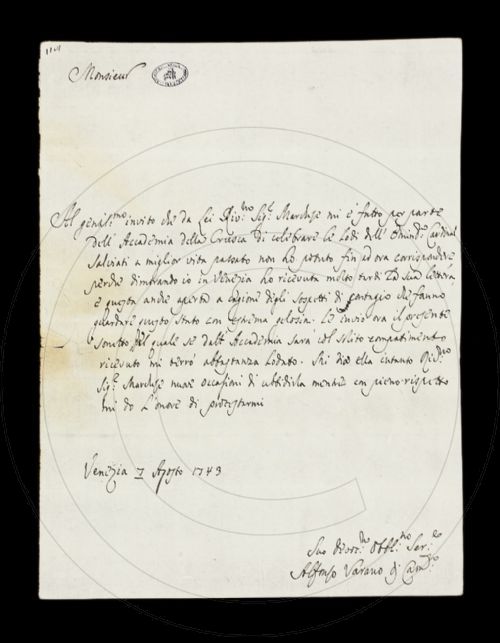 Monsieur
Al gentil.mo invito che da Lei Riv.mo Sig.r Marchese mi è fatto per parte
dell'Accademia della Crusca di celebrare le Lodi dell'Emin.mo Cardinal
Salviati a miglior vita passato non ho potuto fin ad ora corrispondere
perchè dimorando io in Venezia ho ricevuta molto tardi la sua lettera
e questa anche aperta a cagione degli sospetti di contagio che fanno
guardare questo Stato con estrema gelosia. Le invio ora il presente
Sonetto sul quale se dall'Accademia sarà col solito compatimento
ricevuto mi terrò abbastanza lodato. Mi dia ella intanto
Sig.r Marchese nuove occasioni di ubbidirla mentre con pieno rispetto
mi do l'onore di protestarmi
Venezia 7 Agosto 1743
Suo Devot.mo Obbl.mo Ser.re
Alfonso Varano di Cam.no